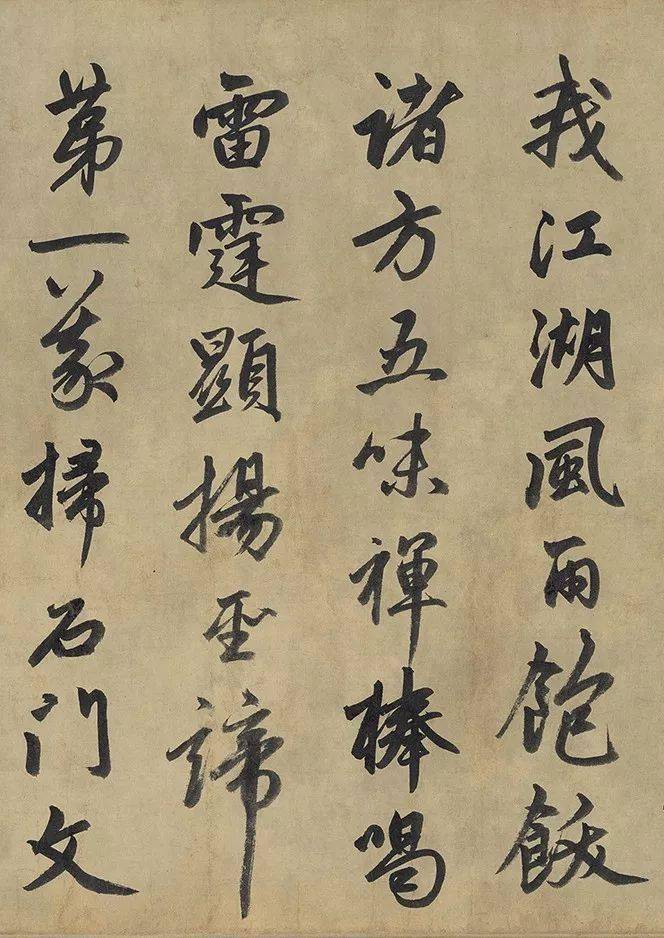 我江湖風雨飽飫
諸方五味禪棒喝
雷霆顯揚聖諦
第一義掃石門文